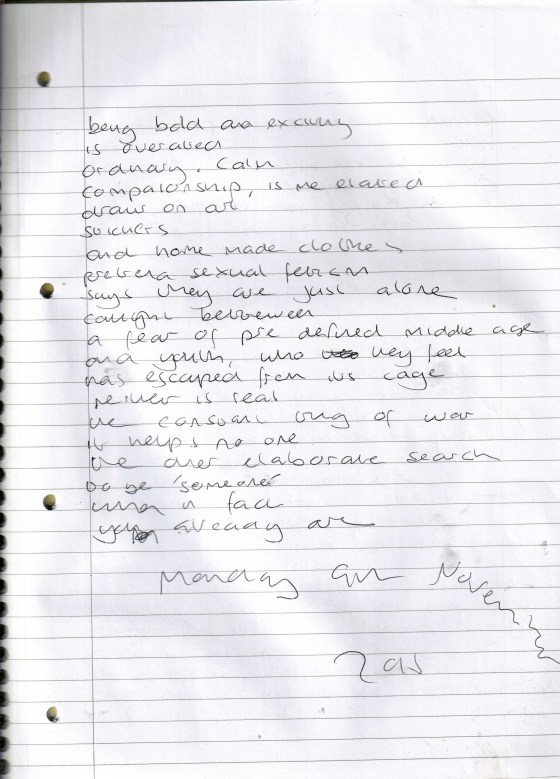 being bold and exciting
is overated
ordinary. Calm
companionship, is me elated
draws on art
suckers
and home made clothes
pretend sexual fetish
says they are just alone
caught between
a fear of pre defined middle age
and youth, who they feel
has escaped from its cage
neither is real
the constant tug of war
it helps no one
the over elaborate search
to be 'someone'
when in fact
you already are
Monday 9th November
2015